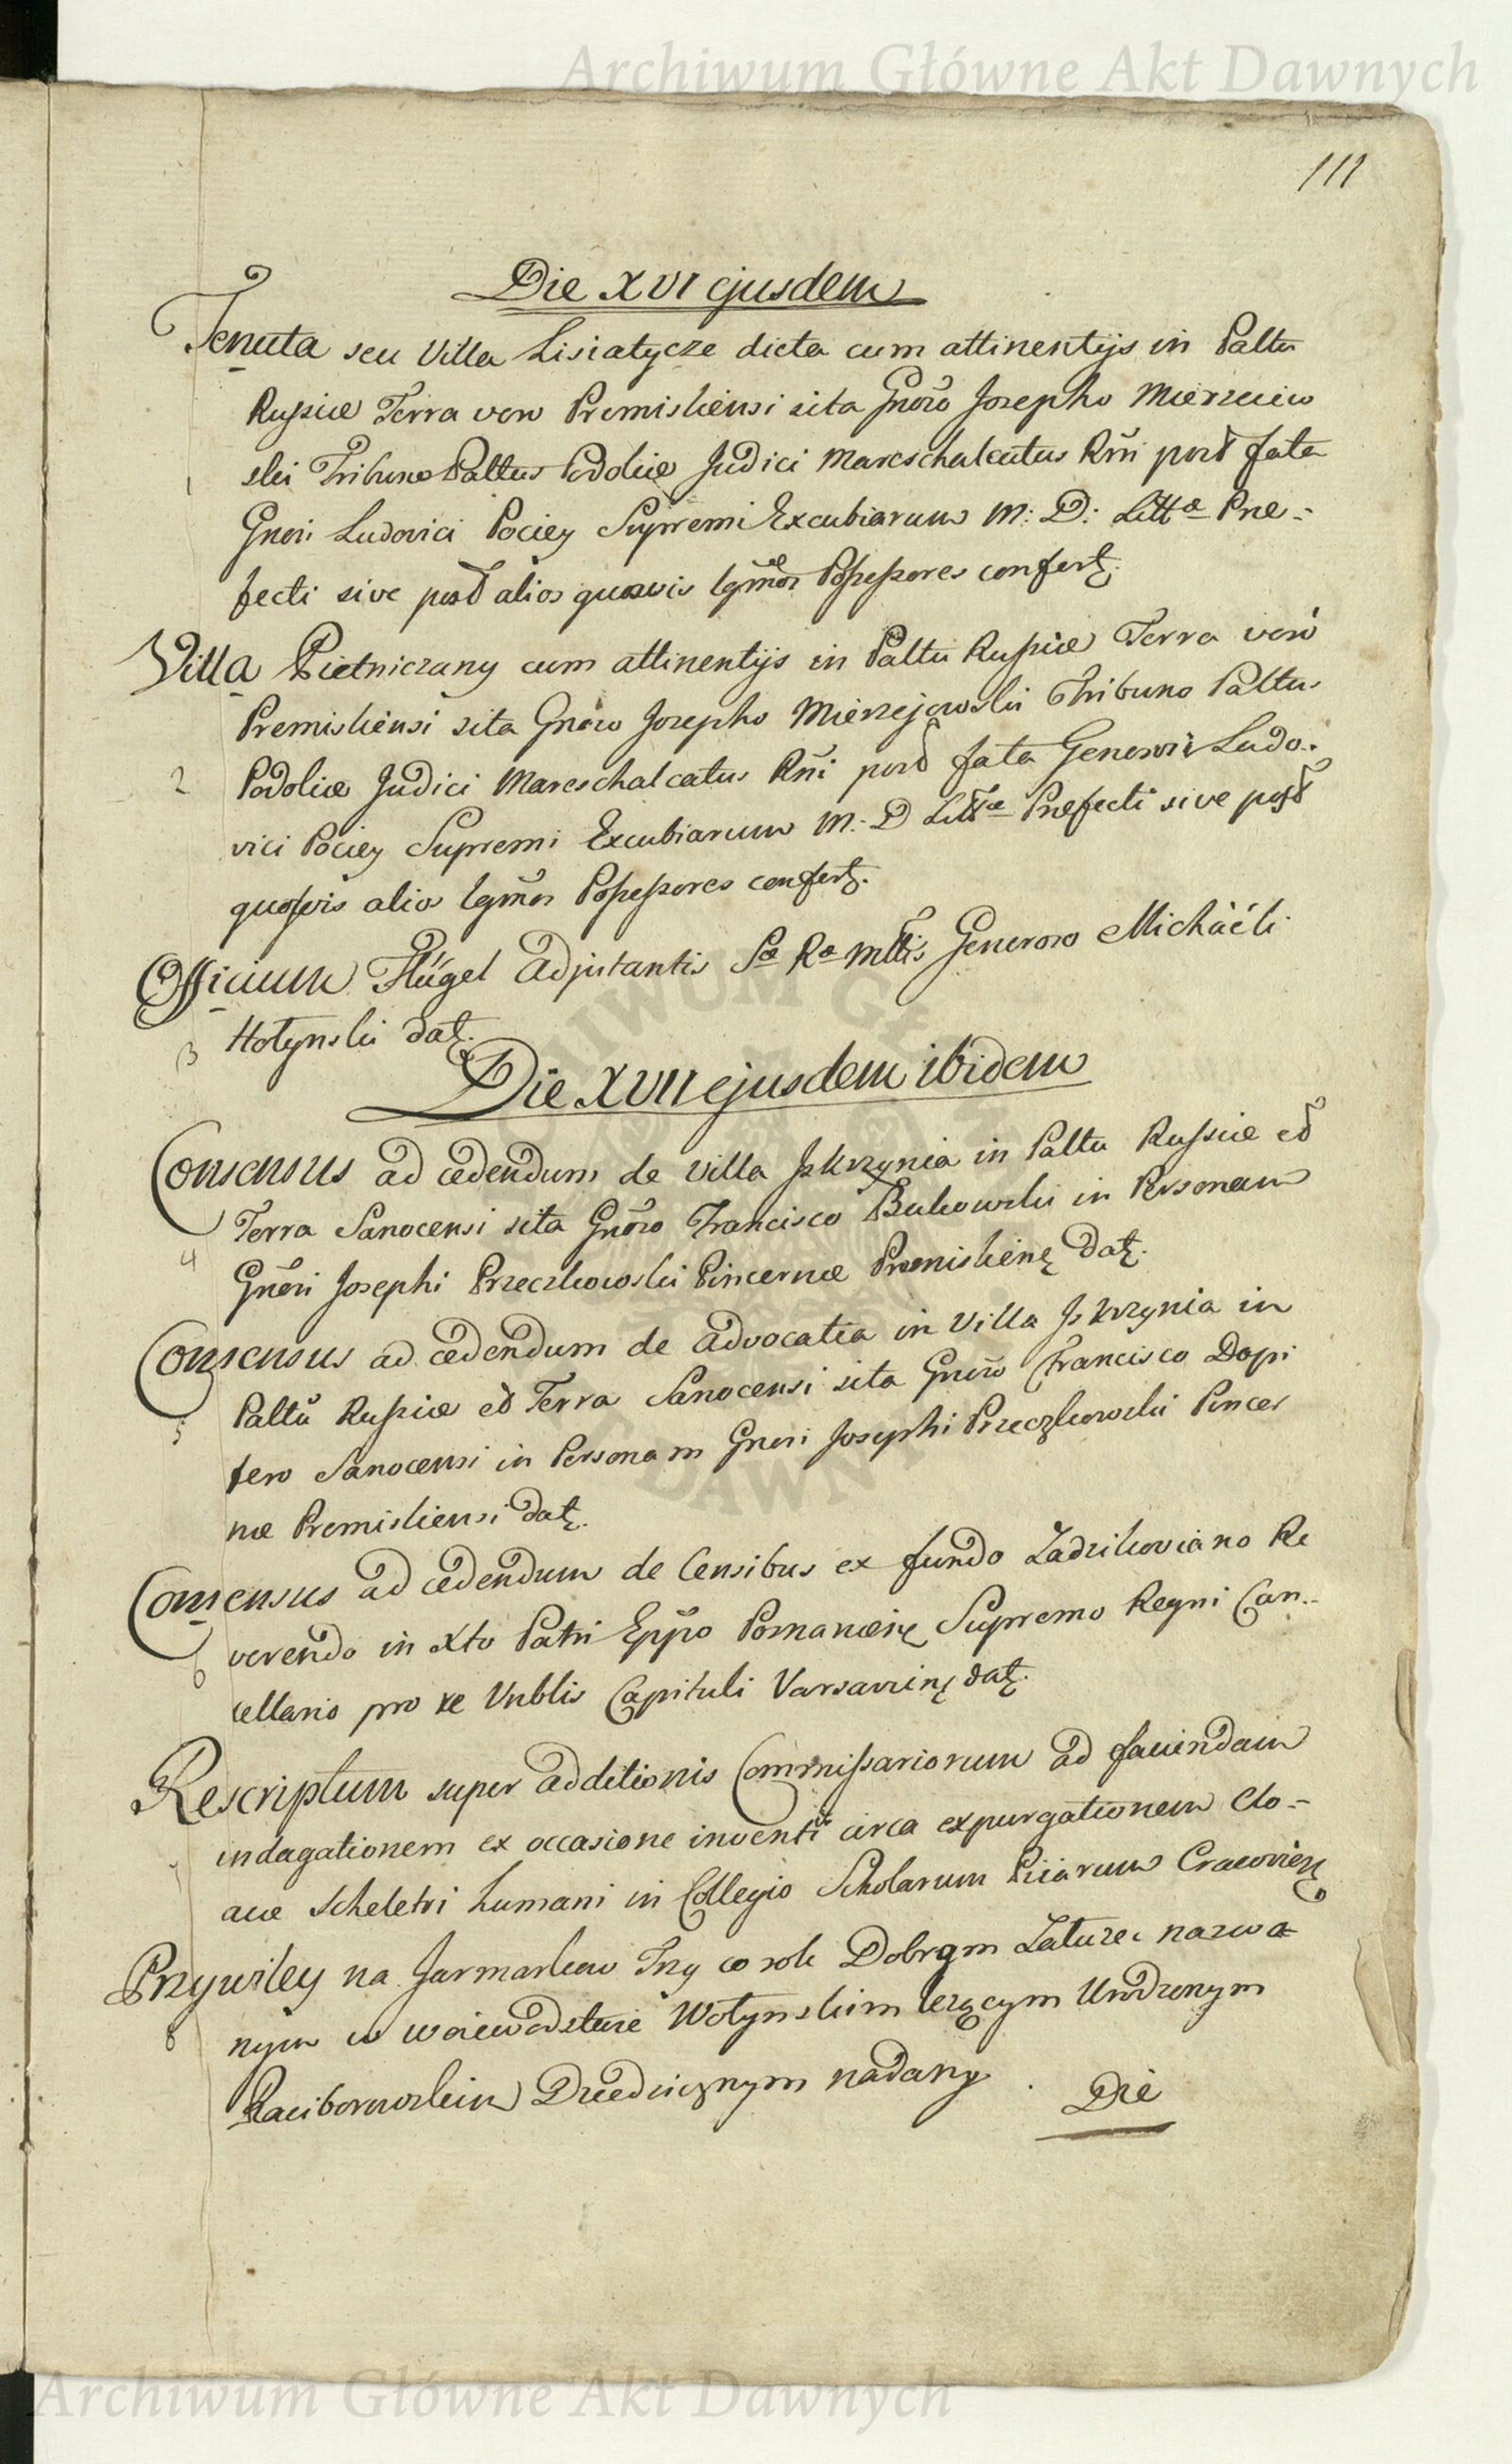 Archiwum Główne Akt Dawnych
111
Die XVI ejusdem
Tenuta seu Villa Lisiatycze dicta cum attinentijs in Paltu
Russiæ Terra vero Premisliensi sita Gnoso Josepho Mierzeiew
ski Tribuno Paltus Podoliæ Judici Mareschalcatus Rni post fata
1
Gnosi Ludovici Pociey Supremi Excubiarum M: D: Littæ Præ-
fecti sive post alios quosvis lgmos Possessores confert.
Villa Pietniczany cum attinentijs in Paltu Russiæ Terra vero
Premisliensi sita Gnoso Josepho Mierzejowski Tribuno Paltus
2 Podoliæ Judici Mareschalcatus Rni post fata Generosi Ludo-
vici Pociey Supremi Excubiarum M: D Littæ Præfecti sive post
quosvis alios lgmos Possessores confert.
Officium Flügel Adjutantis Sæ Ræ Mttis Generoso Michaëli
3 Hołynski dat.
Die XVII ejusdem ibidem
Consensus ad cedendum de Villa Jskrzynia in Paltu Russiæ et
Terra Sanocensi sita Gnoso Francisco Bukowski in Personam
4 Gnosi Josephi Przeczkowski Pincernæ Premislien dat.
Consensus ad cedendum de Advocatia in Villa Jskrzynia in
5 Paltu Russiæ et Terra Sanocensi sita Gnoso Francisco Dapi
fero Sanocensi in Personam Gnosi Josephi Przeczkowski Pincer
næ Premisliensi dat.
Consensus ad cedendum de Censibus ex fundo Zadzikoviano Re
6 verendo in Xto Patri Eppo Posnanien Supremo Regni Can-
cellario pro re Vnblis Capituli Varsavien dat.
Rescriptum super additionis Commissariorum ad faciendam
7 indagationem ex occasione inventi circa expurgationem Clo-
acæ Scheletri humani in Collegio Scholarum Piiarum Cracovien
Przywiley na Jarmarkow Trzy co rok Dobrom Zaturce nazwa
8 nym w woiewodztwie Wołynskim leżącym Urodzonym
Raciborowskim Dziedzicznym nadany
Die
Archiwum Główne Akt Dawnych